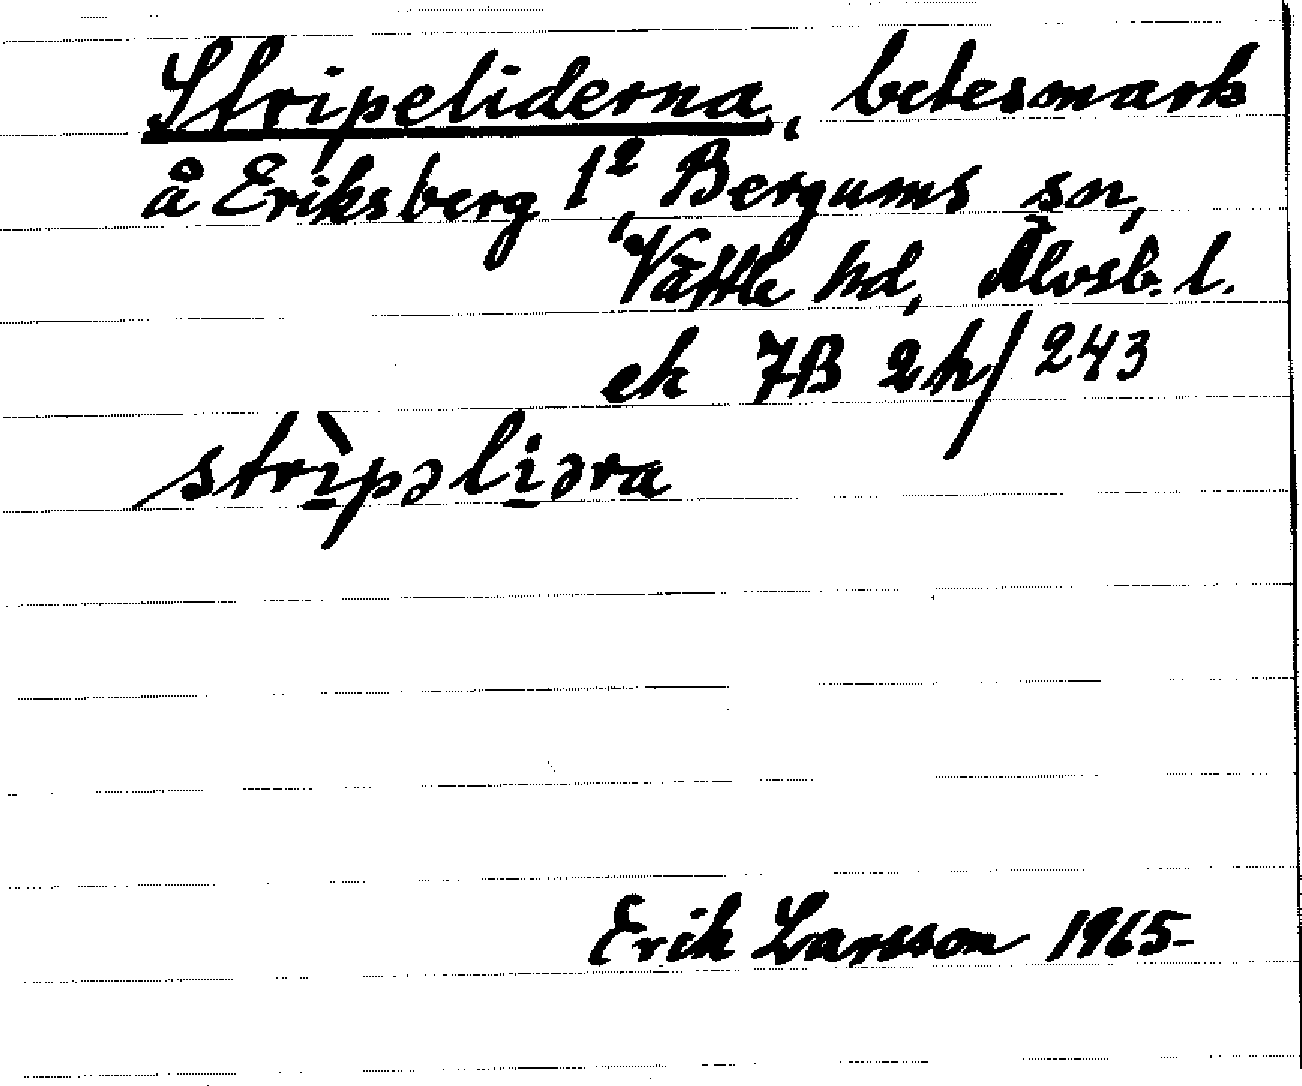 Stripeliderna, betesmark
å Eriksberg 1², Bergums sn,
Vättle hd, Älvsb. l.
ek 7B 2h/243
strì̱pəli̱əra
Erik Larsson 1965